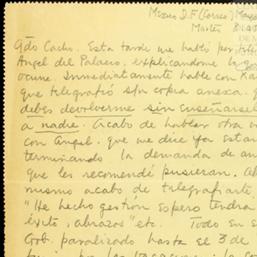 Mexico D.F. (Correo) Mayo
Martes
Qdo Cachi. Esta tarde me habló por teléf
Angel del Palacio, explicándome lo q
ocurre. Inmediatamente hablé con
que telegrafió s/n copia anexa, q
debes devolverme sin enseñarsel
a nadie. Acabo de hablar otra v
con Angel, que me dice ya estan
terminando la demanda de am
que les recomendé pusieran. Ah
mismo acabo de telegrafiarte,
"He hecho gestión espero tendrá
éxito, abrazos" etc. Todo en s
Gob. paralizado hasta el 3 de